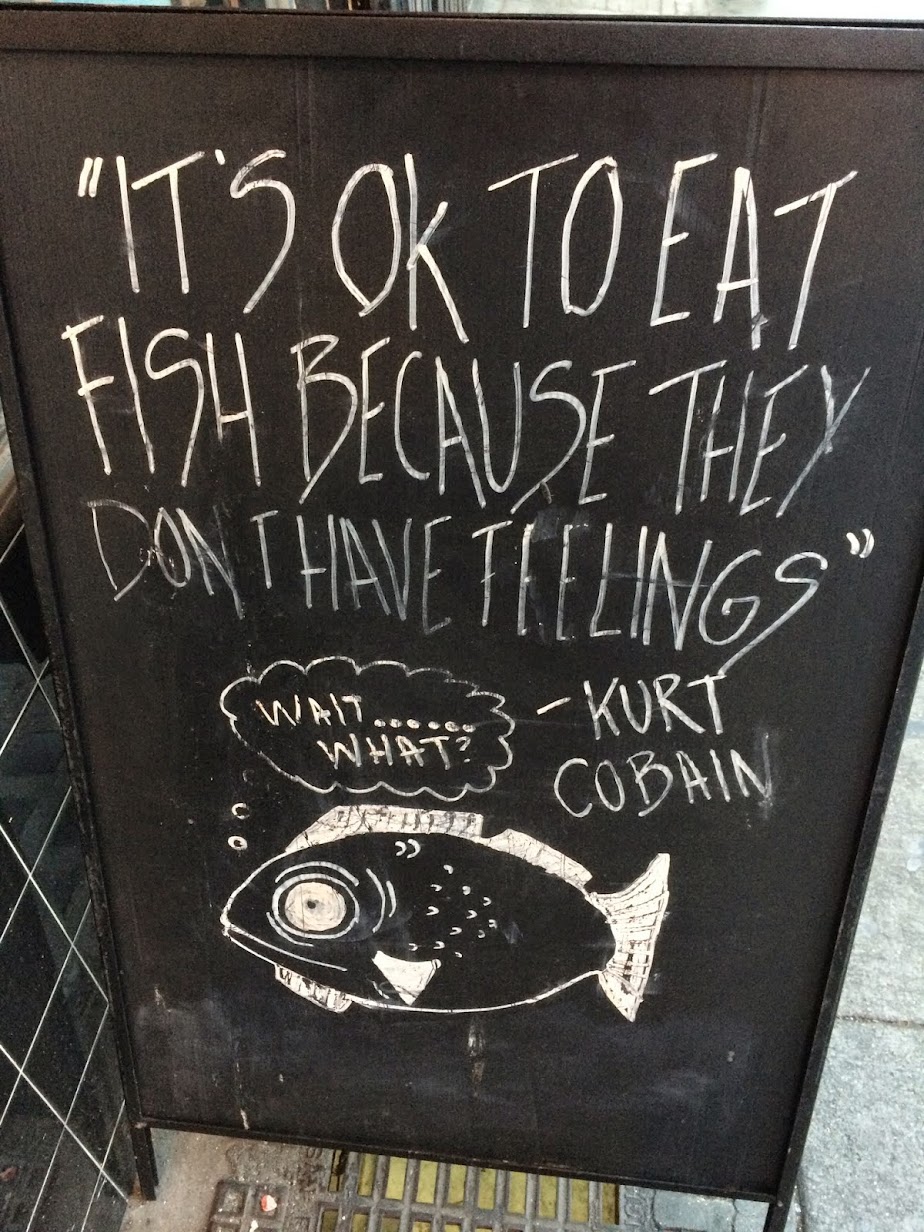 "IT'S OK TO EAT
FISH BECAUSE THEY
DON'T HAVE FEELINGS"
- KURT
COBAIN
WAIT.......
WHAT?